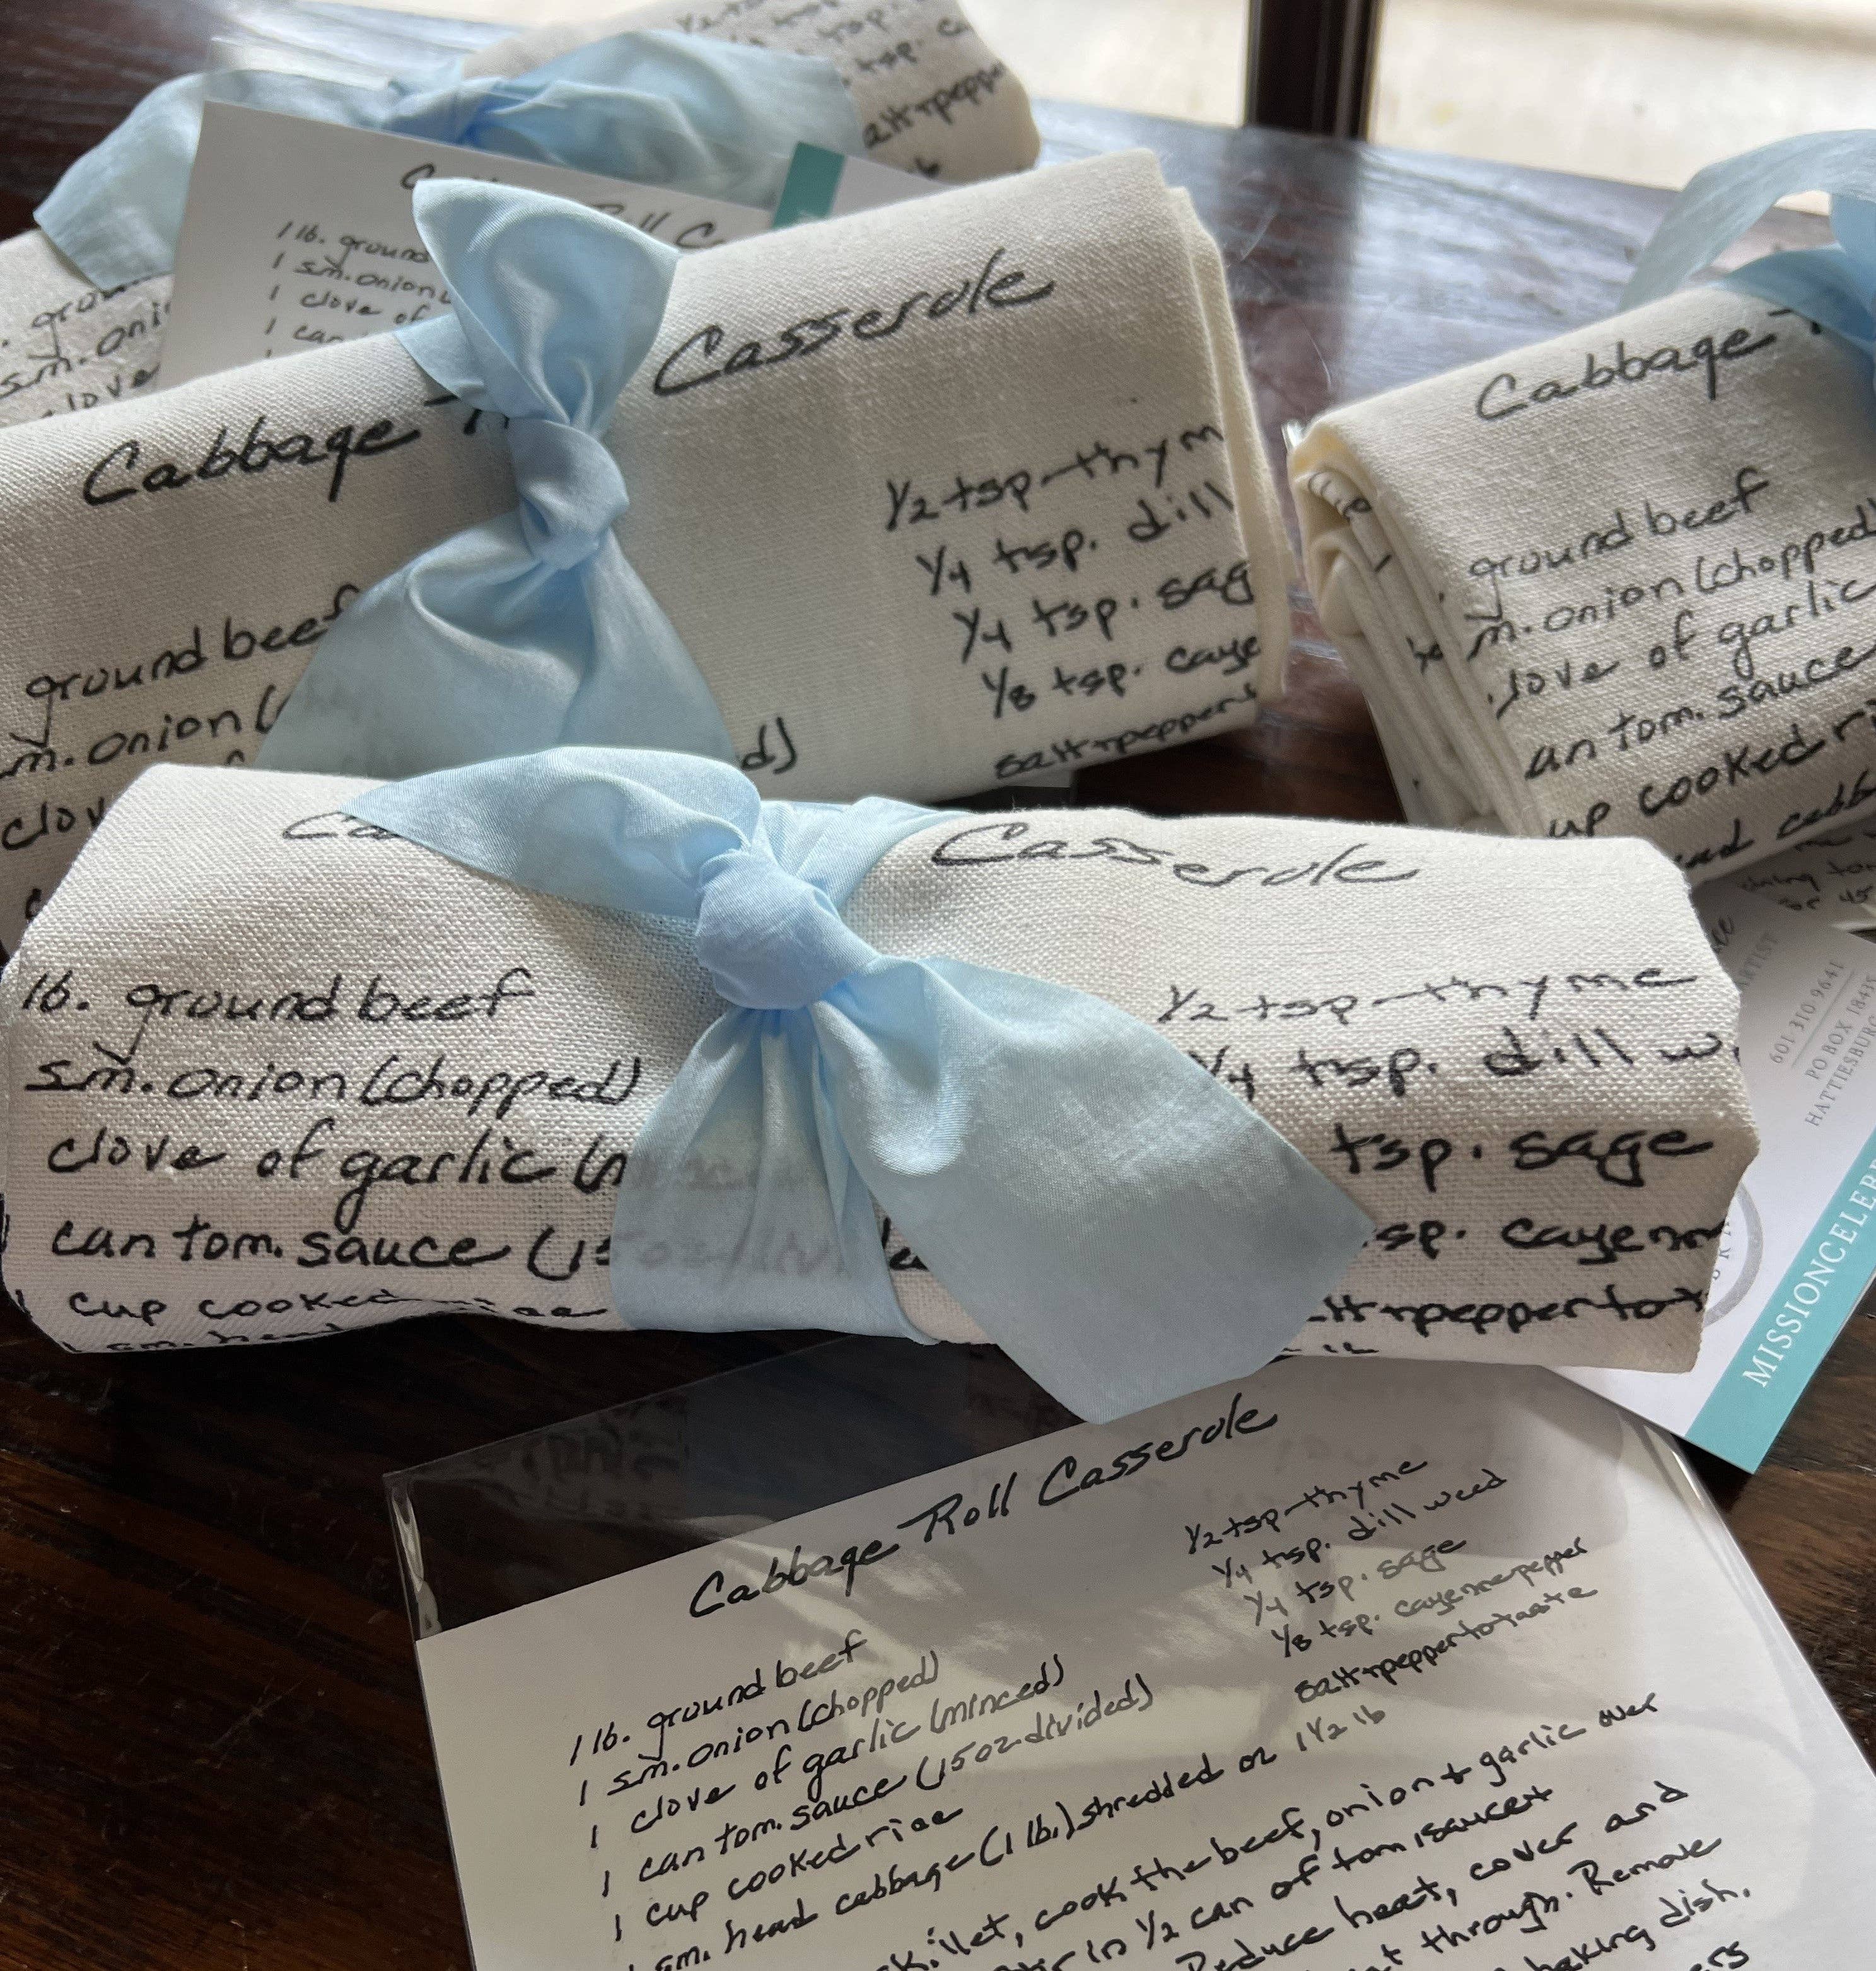 1/2 tsp.
tsp. ca
salt + pepper
1 lb. ground
1 sm. onion
1 clove of
1 can
sm. oni
clove
Cabbage Casserole
ground beef
sm. onion (
clov
1/2 tsp-thym
1/4 tsp. dill
1/4 tsp. sag
1/8 tsp. caye
salt + pepper t
d)
Cabbage
ground beef
m. onion (chopped)
clove of garlic
an tom. sauce
up cooked ri
ad cabba
Ca Casserole
lb. ground beef
sm. onion (chopped)
clove of garlic (m
can tom. sauce (15 oz
cup cooked rice
1 sm. head
1/2 tsp-thyme
1/4 tsp. dill w
tsp. sage
sp. cayenn
lt + pepper to t
for 45
ARTIST
601 310 9641
PO BOX 1843
HATTIESBU
MISSIONCELEB
Cabbage Roll Casserole
1 lb. ground beef
1 sm. onion (chopped)
1 clove of garlic (minced)
1 can tom. sauce (15 oz. divided)
1 cup cooked rice
1 sm. head cabbage (1 lb.) shredded or 1 1/2 lb
1/2 tsp-thyme
1/4 tsp. dill weed
1/4 tsp. sage
1/8 tsp. cayenne pepper
salt + pepper to taste
skillet, cook the beef, onion + garlic over
in 1/2 can of tom. sauce +
Reduce heat, cover and
through. Remove
baking dish.